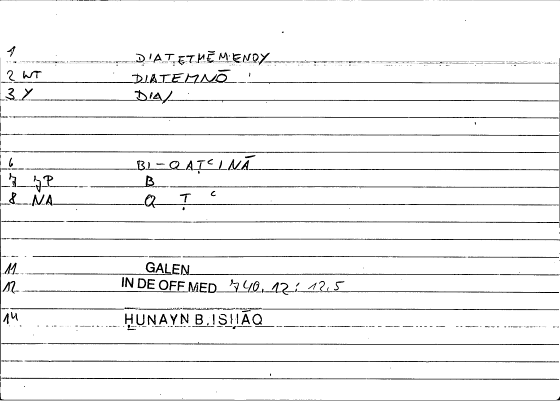 1 DIATETHEMENOY
2 WT DIATEMNŌ
3 Y DIA/
6 BI-QAṬᶜINĀ
7 JP B
8 NA Q Ṭ ᶜ
11 GALEN
12 IN DE OFF MED 740,12: 12,5
14 ḤUNAYN B. ISḤĀQ